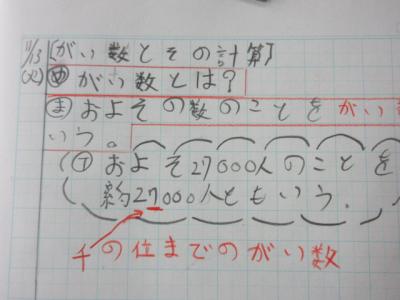 11/13 [がい数とその計算]
(火) め がい数とは?
ま およその数のことをがい数
いう。
(T) およそ27000人のことを
約27000人ともいう.
千の位までのがい数